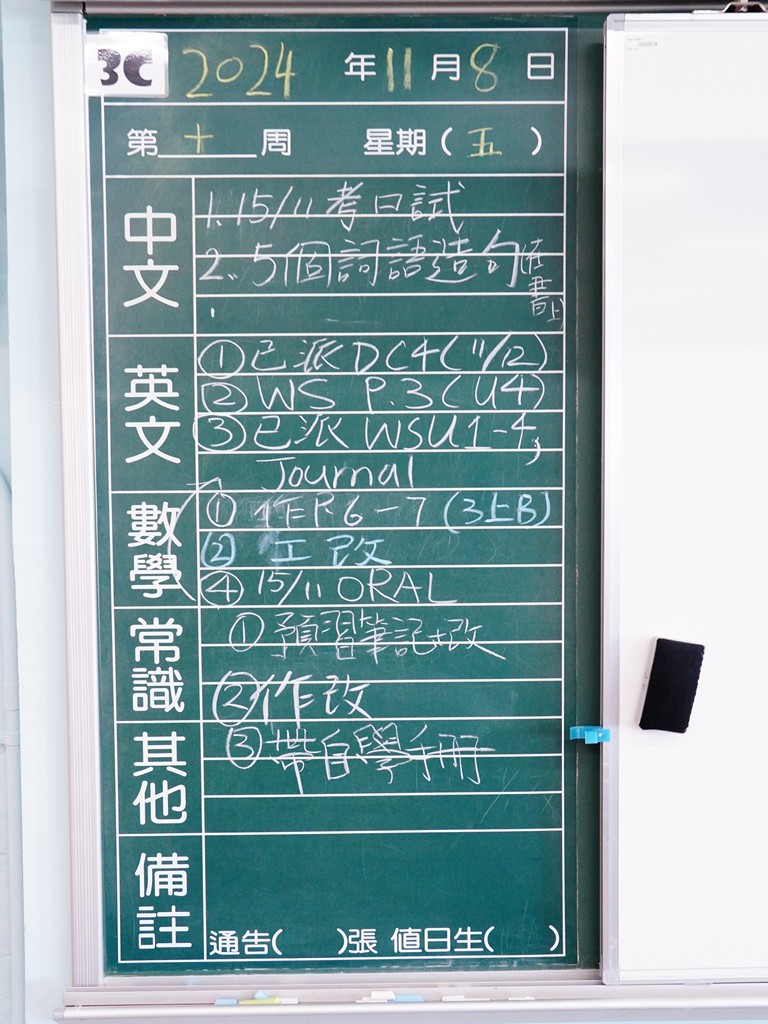 3C 2024 年 11 月 8 日
第 十 周 星期 ( 五 )
中文
1. 15/11 考口試
2. 5個詞語造句
書上
英文
① 已派 DC4 (11/12)
② WS P.3 (U4)
③ 已派 WSU1-4,
Journal
數學
① 作P.6-7 (3上B)
② 工改
④ 15/11 ORAL
常識
① 預習筆記+改
② 作改
③ 帶自學手冊
其他
備註
通告( )張 值日生( )